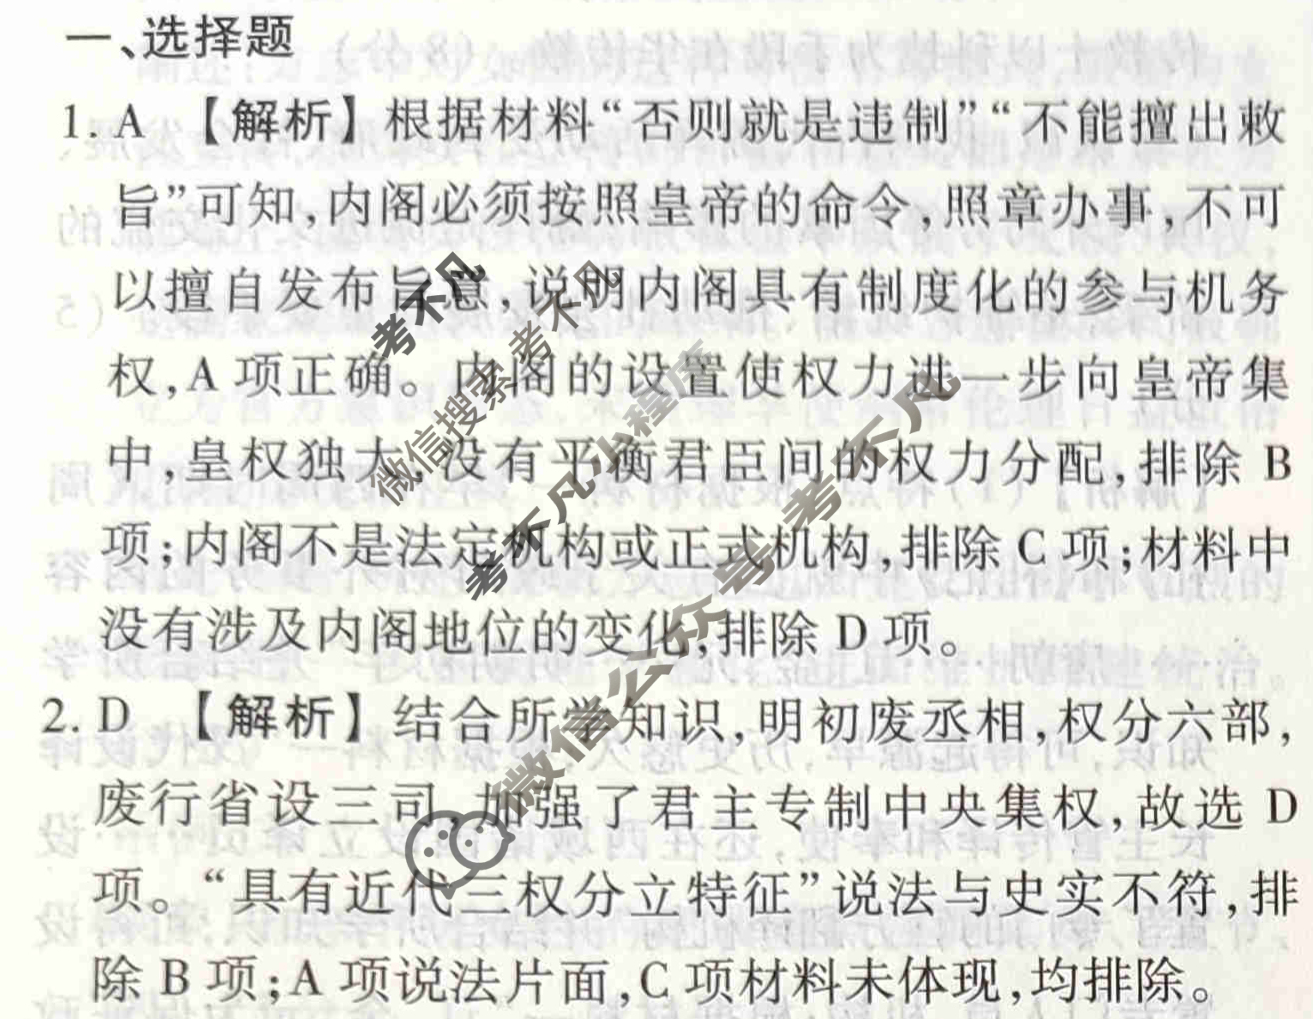 一、选择题
1. A 【解析】根据材料“否则就是违制”“不能擅出敕
旨”可知,内阁必须按照皇帝的命令,照章办事,不可
以擅自发布旨意,说明内阁具有制度化的参与机务
权,A 项正确。内阁的设置使权力进一步向皇帝集
中,皇权独大,没有平衡君臣间的权力分配,排除 B
项;内阁不是法定机构或正式机构,排除 C 项;材料中
没有涉及内阁地位的变化,排除 D 项。
2. D 【解析】结合所学知识,明初废丞相,权分六部,
废行省设三司,加强了君主专制中央集权,故选 D
项。“具有近代三权分立特征”说法与史实不符,排
除 B 项;A 项说法片面,C 项材料未体现,均排除。
考不凡
微信搜索考不凡
考不凡小程序
微信公众号 考不凡